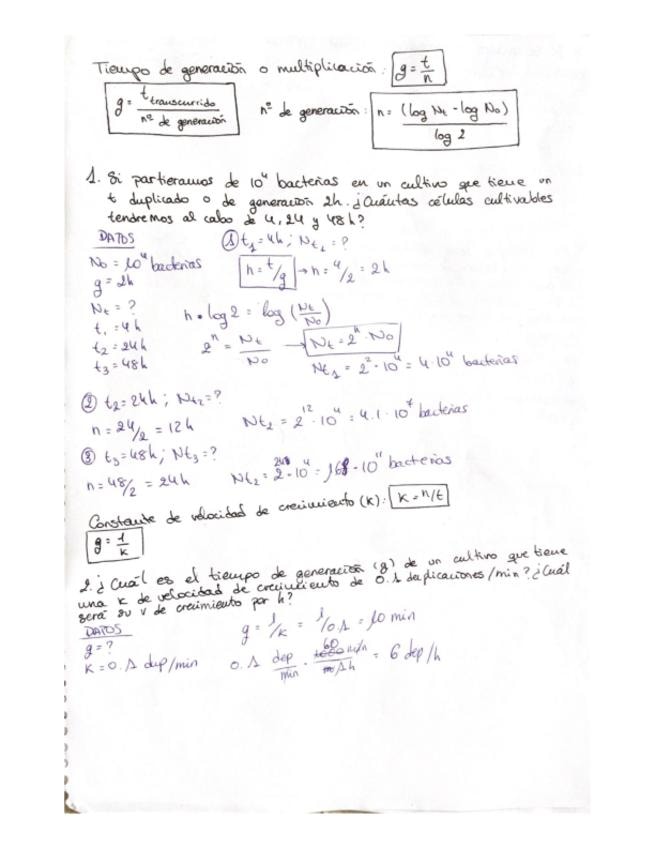 Tiempo de generación o multiplicación: g = t/n
g = t transcurrido / nº de generación nº de generación: n = (log Nt - log No) / log 2
1. Si partieramos de 10⁴ bacterias en un cultivo que tiene un
t duplicado o de generación 2h. ¿Cuántas células cultivables
tendremos al cabo de 4, 24 y 48h?
DATOS
No = 10⁴ bacterias
g = 2h
Nt = ?
t₁ = 4h
t₂ = 24h
t₃ = 48h
① t₁ = 4h ; Nt₁ = ?
n = t/g → n = 4/2 = 2h
n • log 2 = log (Nt/No)
2ⁿ = Nt/No → Nt = 2ⁿ · No
Nt₁ = 2² · 10⁴ = 4 · 10⁴ bacterias
② t₂ = 24h ; Nt₂ = ?
n = 24/2 = 12h Nt₂ = 2¹² · 10⁴ = 4.1 · 10⁷ bacterias
③ t₃ = 48h ; Nt₃ = ?
n = 48/2 = 24h Nt₂ = 2 · 10⁴ = · 10¹¹ bacterias
Constante de velocidad de crecimiento (K): K = n/t
g = 1/K
2. ¿Cuál es el tiempo de generación (g) de un cultivo que tiene
una K de velocidad de crecimiento de 0.1 duplicaciones/min? ¿Cuál
será su v de crecimiento por h?
DATOS
g = ?
K = 0.1 dup/min
g = 1/K = 1/0.1 = 10 min
0.1 dep/min · 60 min/1h = 6 dep/h